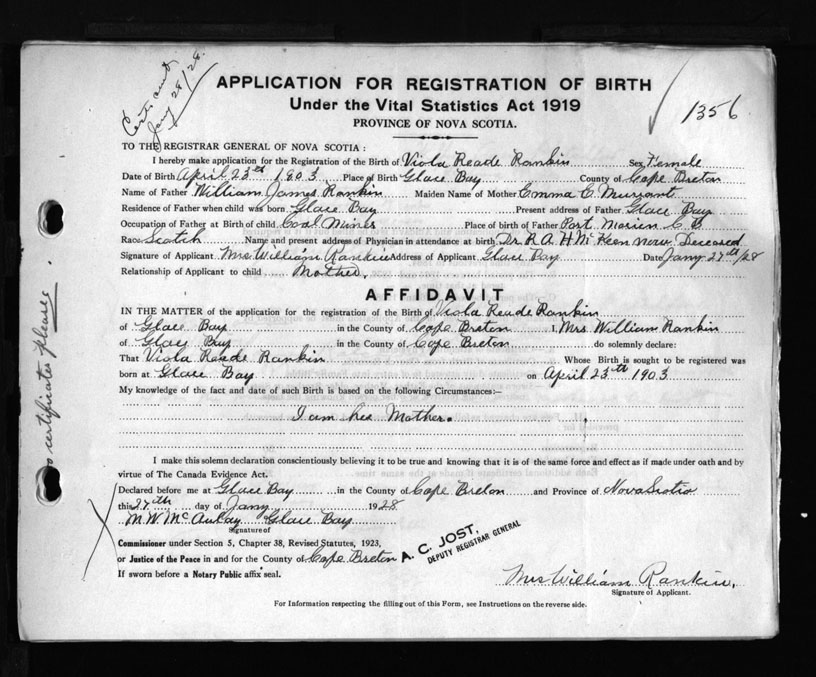 Certs sent.
Jany 28/28.
APPLICATION FOR REGISTRATION OF BIRTH
Under the Vital Statistics Act 1919
PROVINCE OF NOVA SCOTIA.
1356
TO THE REGISTRAR GENERAL OF NOVA SCOTIA:
I hereby make application for the Registration of the Birth of Viola Reade Rankin Sex Female
Date of Birth April 23rd 1903 Place of Birth Glace Bay County of Cape Breton
Name of Father William James Rankin Maiden Name of Mother Emma C.
Residence of Father when child was born Glace Bay Present address of Father Glace Bay
Occupation of Father at Birth of child Coal Miner Place of birth of Father Port Morien C B
Race Scotch Name and present address of Physician in attendance at birth Dr. R A H McKeen now Deceased
Signature of Applicant Mrs William Rankin Address of Applicant Glace Bay Date Jany 27th/28
Relationship of Applicant to child Mother.
AFFIDAVIT
IN THE MATTER of the application for the registration of the Birth of Viola Reade Rankin
of Glace Bay in the County of Cape Breton I, Mrs William Rankin
of Glay Bay in the County of Cape Breton do solemnly declare:
That Viola Reade Rankin Whose Birth is sought to be registered was
born at Glace Bay on April 23th 1903
My knowledge of the fact and date of such Birth is based on the following Circumstances:—
I am her Mother.
I make this solemn declaration conscientiously believing it to be true and knowing that it is of the same force and effect as if made under oath and by
virtue of The Canada Evidence Act.
Declared before me at Glace Bay in the County of Cape Breton and Province of Nova Scotia
this 27th day of Jany 1928
M. W. McAulay Glace Bay
Signature of
Commissioner under Section 5, Chapter 38, Revised Statutes, 1923,
or Justice of the Peace in and for the County of Cape Breton
If sworn before a Notary Public affix seal.
A. C. JOST,
DEPUTY REGISTRAR GENERAL
Mrs William Rankin,
Signature of Applicant.
For Information respecting the filling out of this Form, see Instructions on the reverse side.
certificates please